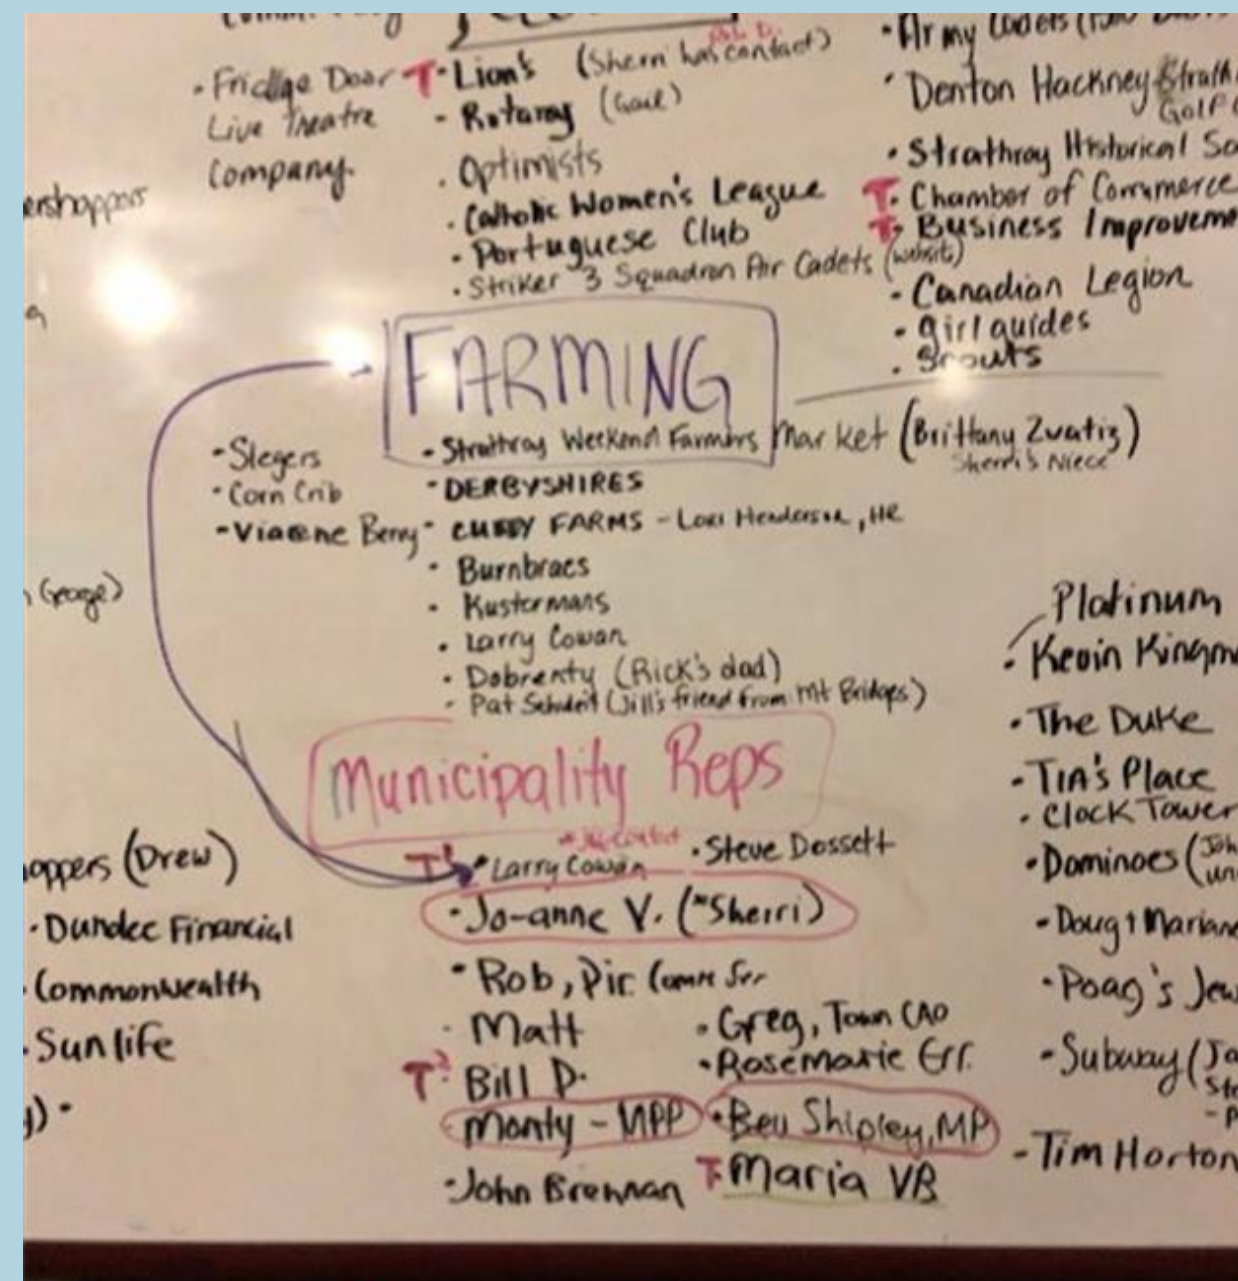 · Fridge Door
Live Theatre
Company.
T · Lion's (Sherri has contact)
- Rotary (Gail)
· Optimists
· Catholic Women's League
· Portuguese Club
· Striker 3 Squadron Air Cadets (website)
· Army Cadets
· Denton Hackney
Golf
· Strathroy Historical
T · Chamber of Commerce
T · Business
· Canadian Legion
· Girl guides
· Scouts
FARMING
· Slegers
· Corn Crib
- Viaene Berry
· Strathroy Weekend Farmers Market (Brittany Zvatiz)
Sherri's Niece
· DERBYSHIRES
· CUDDY FARMS - Lori Henderson, HR
· Burnbraes
· Kustermans
· Larry Cowan
· Dobrenty (Rick's dad)
· Pat (Jill's friend from Mt Bridges)
Municipality Reps
T · Larry Cowan
· Steve Dossett
· Jo-anne V. (*Sherri)
· Rob, Dir
· Matt
· Greg, Town CAO
T · Bill D.
· Rosemarie
Monty - MPP
· Bev Shipley, MP
· John Brennan
T · Maria VB
George)
(Drew)
· Dundee Financial
· Commonwealth
· Sunlife
Platinum
· Kevin
· The Duke
· Tia's Place
· Clock Tower
· Dominoes
· Doug +
· Poag's
· Subway
- Tim Horton